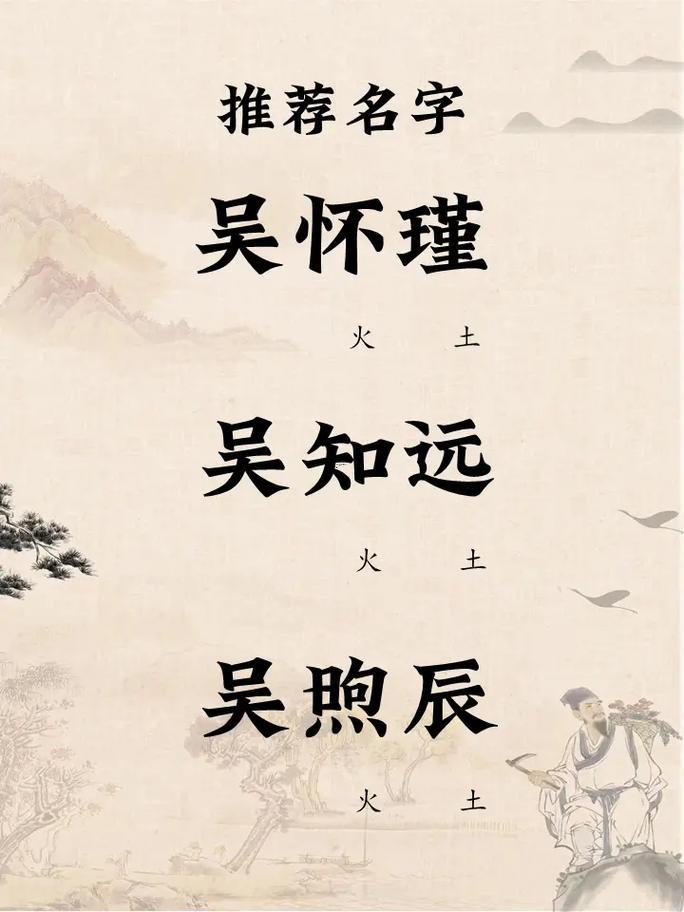 推荐名字
吴怀瑾
火 土
吴知远
火 土
吴煦辰
火 土